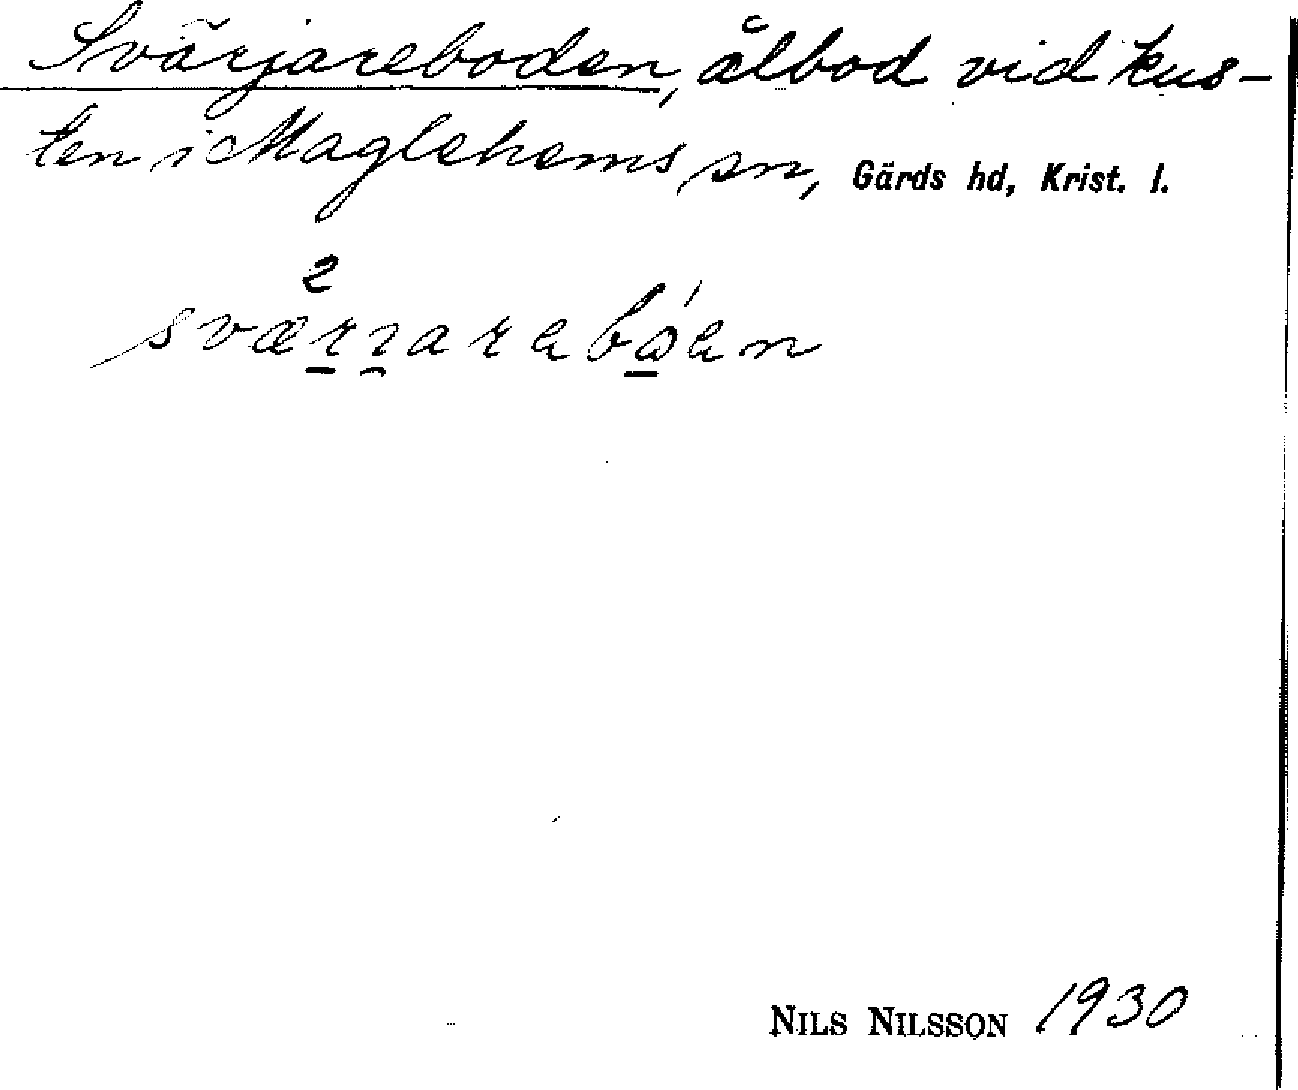 Svärjareboden, ålbod vid kus-
ten i Maglehems sn, Gärds hd, Krist. l.
2
NILS NILSSON 1930